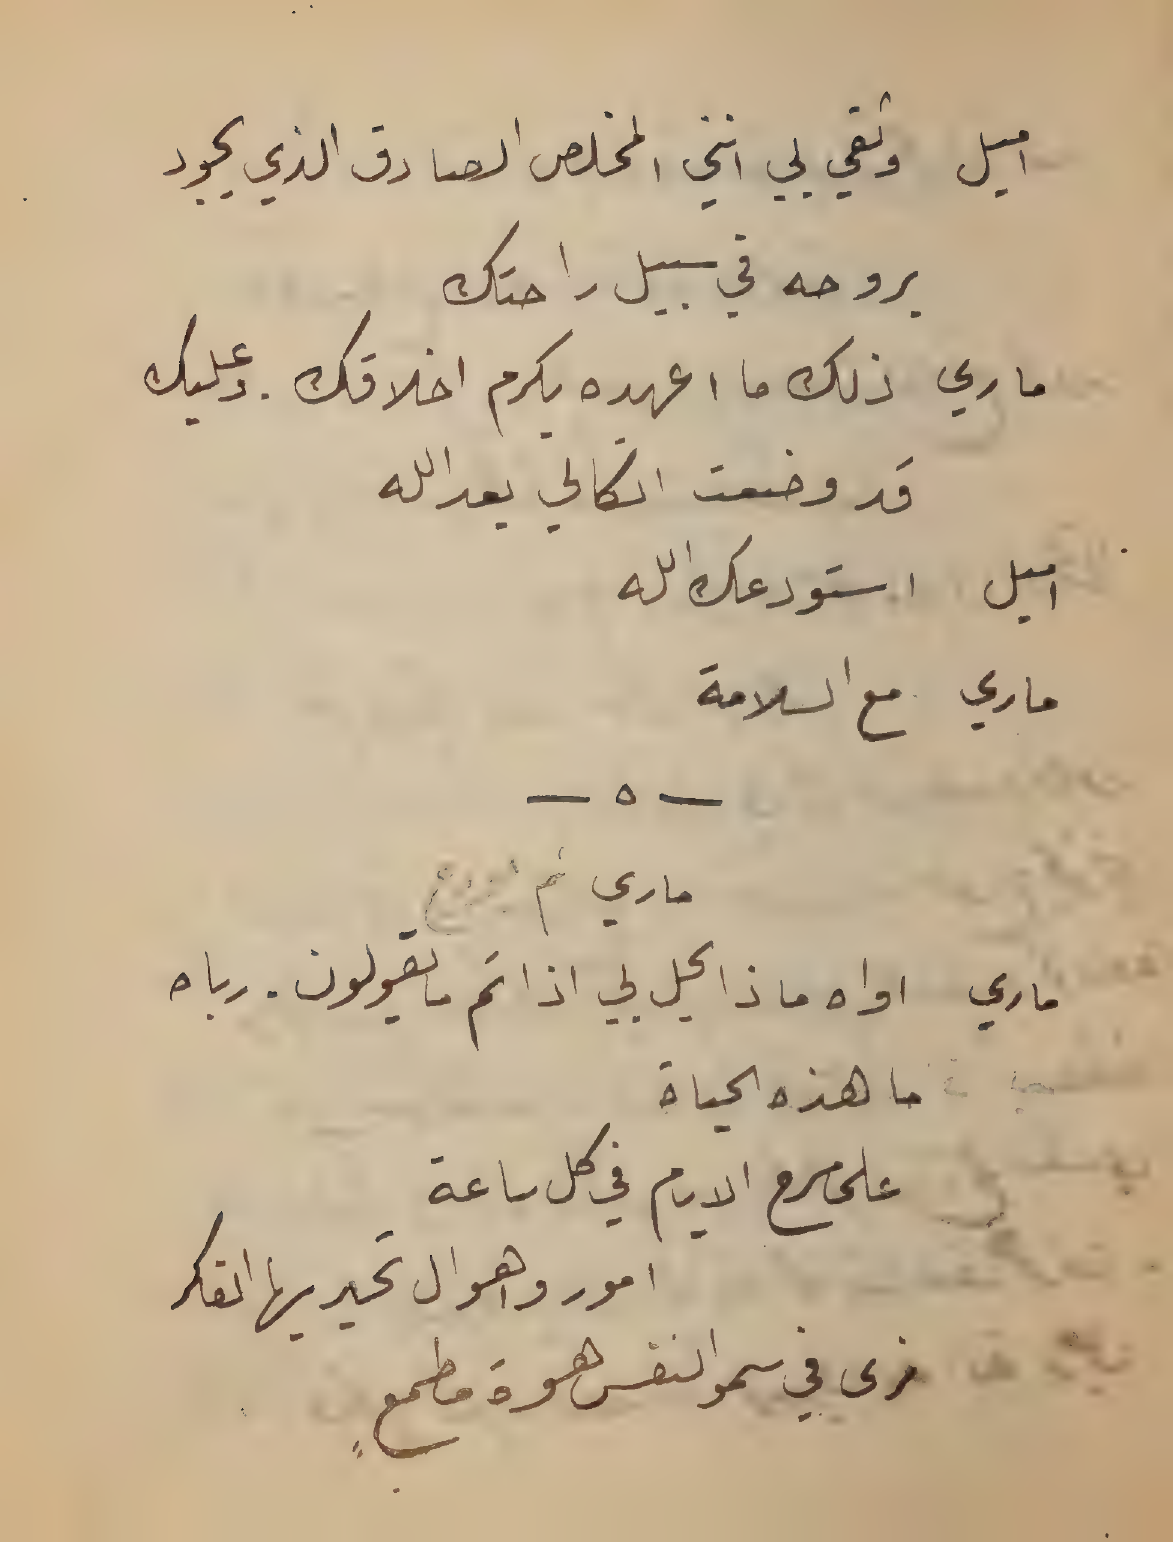 اميل وثقي بي انني المخلص الصادق الذي يجود
بروحه في سبيل راحتك
ماري ذلك ما اعهده بكرم اخلاقك . وعليك
قد وضعت اتكالي بعد الله
اميل استودعك الله
ماري مع السلامة
— ٥ —
ماري ثم
ماري اواه ماذا يحل بي اذا تم ما تقولون . رباه
ما هذه الحياة
على مسرح الايام في كل ساعة
امور واهوال تحير بها الفكر
نرى في سمو النفس هوة مطمع